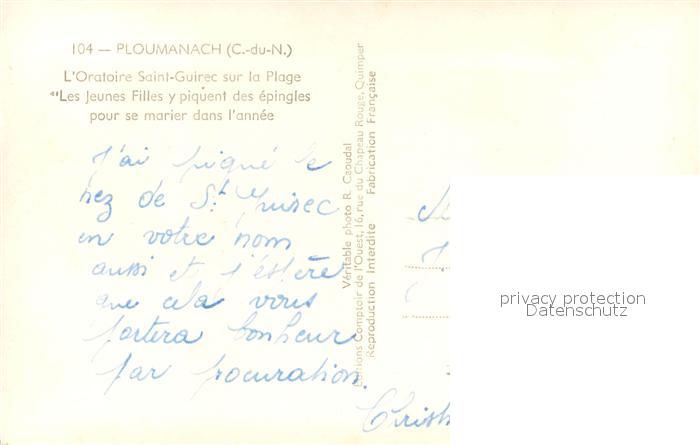 104 — PLOUMANACH (C.-du-N.)
L'Oratoire Saint-Guirec sur la Plage
"Les Jeunes Filles y piquent des épingles
pour se marier dans l'année
J'ai piqué le
nez de St Guirec
en votre nom
aussi et j'espère
que cela vous
portera bonheur
par procuration.
Christ
Véritable photo R. Caoudal
Editions Comptoir de l'Ouest, 16, rue du Chapeau Rouge, Quimper
Reproduction Interdite Fabrication Française
privacy protection
Datenschutz